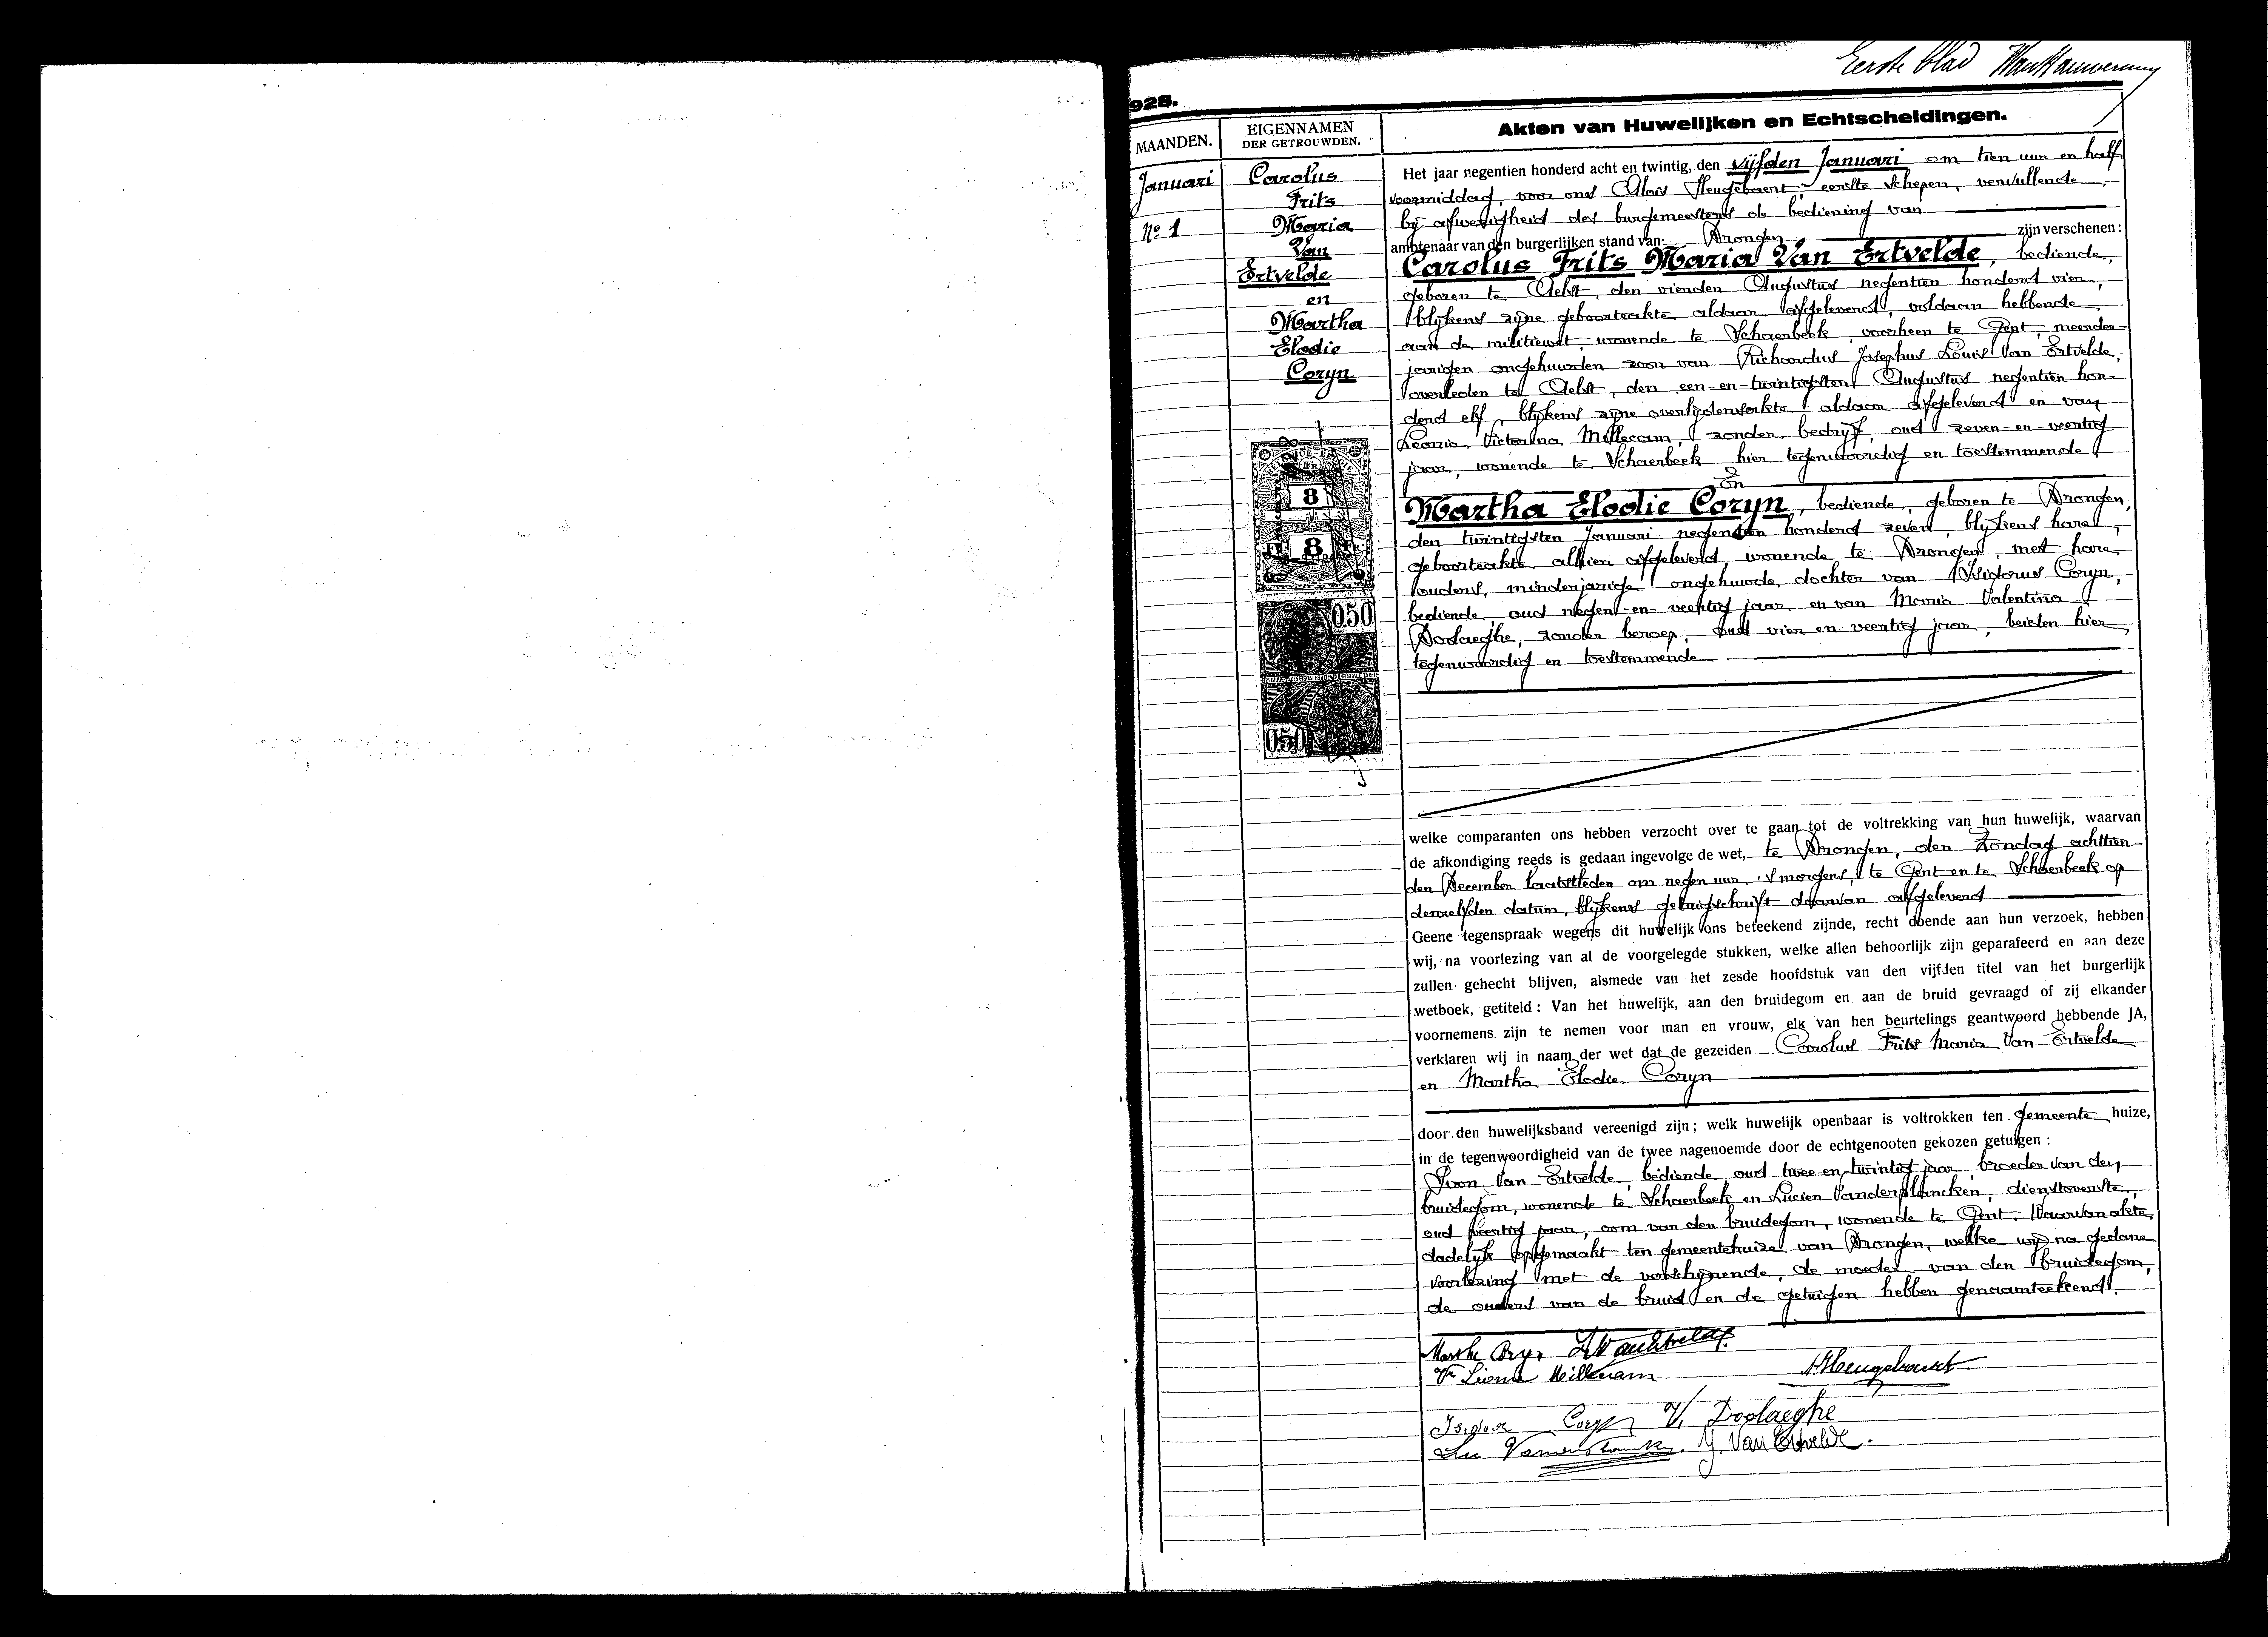 Eerste blad
928.
MAANDEN.
EIGENNAMEN
DER GETROUWDEN.
Akten van Huwelijken en Echtscheidingen.
Januari
No 1
Carolus
Frits
Maria
Van
Ertvelde
en
Martha
Elodie
Coryn
8
8
0.50
0.50
Het jaar negentien honderd acht en twintig, den vijfden Januari om tien uur en half
voormiddag, voor ons Aloïs Heugebaert, eerste schepen, vervullende
bij afwezigheid des burgemeesters de bediening van
ambtenaar van den burgerlijken stand van Drongen zijn verschenen:
Carolus Frits Maria Van Ertvelde, bediende,
geboren te Aelst, den vierden Augustus negentien honderd vier,
blijkens zijne geboorteakte aldaar afgeleverd, voldaan hebbende
aan de militiewet, wonende te Schaerbeek, voorheen te Gent, meerder-
jarigen ongehuwden zoon van Richardus Josephus Louis Van Ertvelde,
overleden te Aelst, den een-en-twintigsten Augustus negentien hon-
derd elf, blijkens zijne overlijdensakte aldaar afgeleverd en van
Leonia Victorina Millecam, zonder bedrijf, oud zeven-en-veertig
jaar, wonende te Schaerbeek hier tegenwoordig en toestemmende
En
Martha Elodie Coryn, bediende, geboren te Drongen,
den twintigsten Januari negentien honderd zeven, blijkens hare
geboorteakte alhier afgeleverd, wonende te Drongen, met hare
ouders, minderjarige ongehuwde dochter van Isidorus Coryn,
bediende, oud negen-en-veertig jaar, en van Maria Valentina
Doolaeghe, zonder beroep, oud vier en veertig jaar, beiden hier
tegenwoordig en toestemmende
welke comparanten ons hebben verzocht over te gaan tot de voltrekking van hun huwelijk, waarvan
de afkondiging reeds is gedaan ingevolge de wet, te Drongen, den Zondag achttien-
den December laatstleden om negen uur 's morgens, te Gent en te Schaerbeek op
denzelfden datum, blijkens getuigschrift daarvan afgeleverd
Geene tegenspraak wegens dit huwelijk ons beteekend zijnde, recht doende aan hun verzoek, hebben
wij, na voorlezing van al de voorgelegde stukken, welke allen behoorlijk zijn geparafeerd en aan deze
zullen gehecht blijven, alsmede van het zesde hoofdstuk van den vijfden titel van het burgerlijk
wetboek, getiteld: Van het huwelijk, aan den bruidegom en aan de bruid gevraagd of zij elkander
voornemens zijn te nemen voor man en vrouw, elk van hen beurtelings geantwoord hebbende JA,
verklaren wij in naam der wet dat de gezeiden Carolus Frits Maria Van Ertvelde
en Martha Elodie Coryn
door den huwelijksband vereenigd zijn; welk huwelijk openbaar is voltrokken ten gemeente huize,
in de tegenwoordigheid van de twee nagenoemde door de echtgenooten gekozen getuigen:
Yvon Van Ertvelde, bediende, oud twee en twintig jaar, broeder van den
bruidegom, wonende te Schaerbeek en Lucien Vanderplancken, dienstoverste,
oud veertig jaar, oom van den bruidegom, wonende te Gent. Waarvan akte
dadelijk opgemaakt ten gemeentehuize van Drongen, welke wij na gedane
voorlezing met de verschijnende, de moeder van den bruidegom,
de ouders van de bruid en de getuigen hebben genaamteekend.
Marthe Coryn
Millecam
A Heugebaert
Isidoor Coryn V. Doolaeghe
Y. Van Ertvelde.